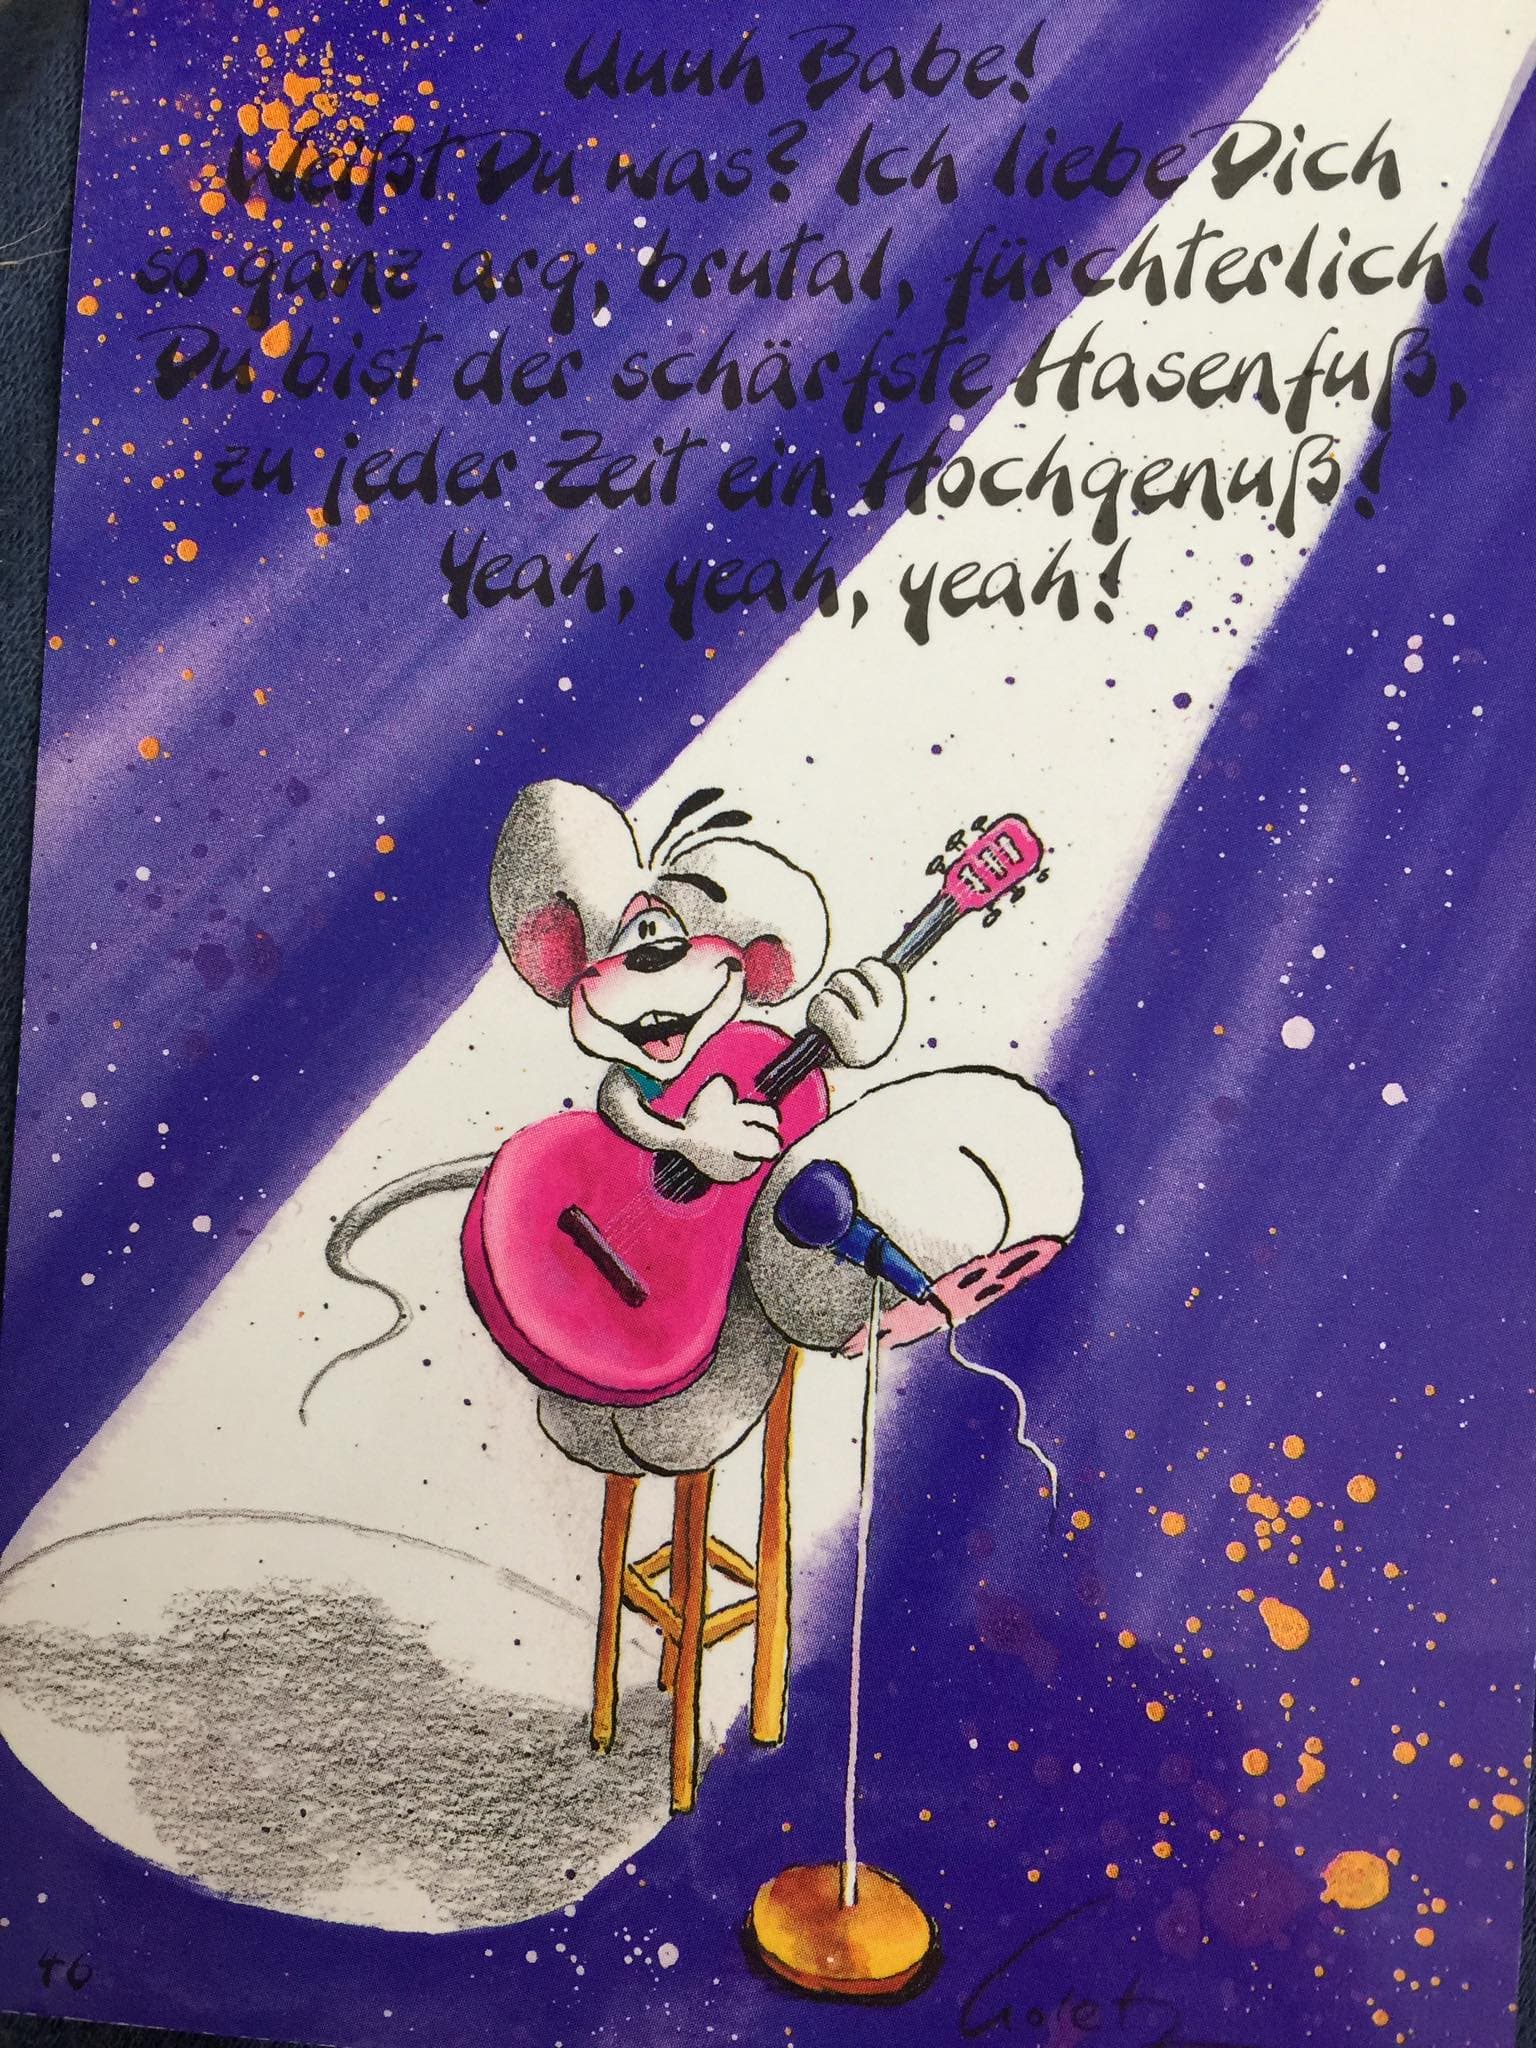 Uuuh Babe!
Weißt Du was? Ich liebe Dich
so ganz arg, brutal, fürchterlich!
Du bist der schärfste Hasenfuß,
zu jeder Zeit ein Hochgenuß!
Yeah, yeah, yeah!
46
Goletz